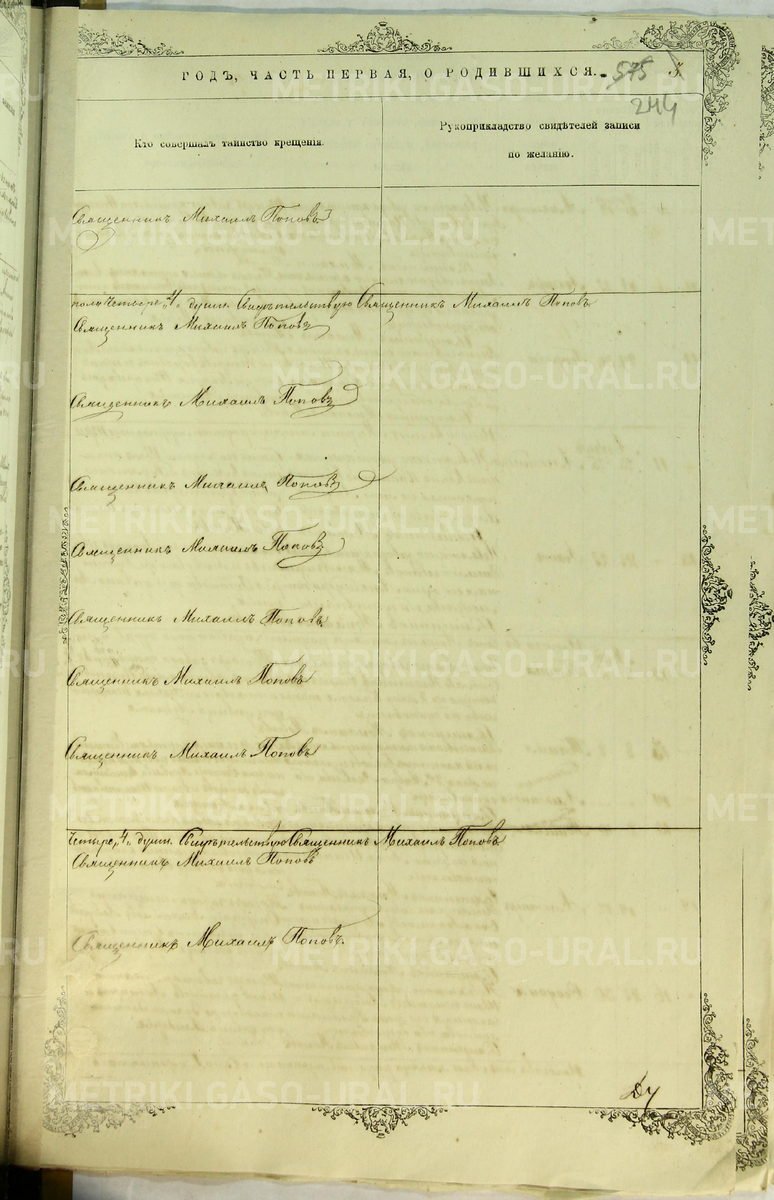 ГОДЪ, ЧАСТЬ ПЕРВАЯ, О РОДИВШИХСЯ.
575 5
244
Кто совершалъ таинство крещенія.
Рукоприкладство свидѣтелей записи
по желанію.
Священникъ Михаилъ Поповъ
пола четыре „4„ души. Свидѣтельствую Священникъ Михаилъ Поповъ
Священникъ Михаилъ Поповъ
Священникъ Михаилъ Поповъ
Священникъ Михаилъ Поповъ
Священникъ Михаилъ Поповъ
Священникъ Михаилъ Поповъ
Священникъ Михаилъ Поповъ
Священникъ Михаилъ Поповъ
четыре „4„ души. Свидѣтельствую Священникъ Михаилъ Поповъ
Священникъ Михаилъ Поповъ
Священникъ Михаилъ Поповъ.
METRIKI.GASO-URAL.RU